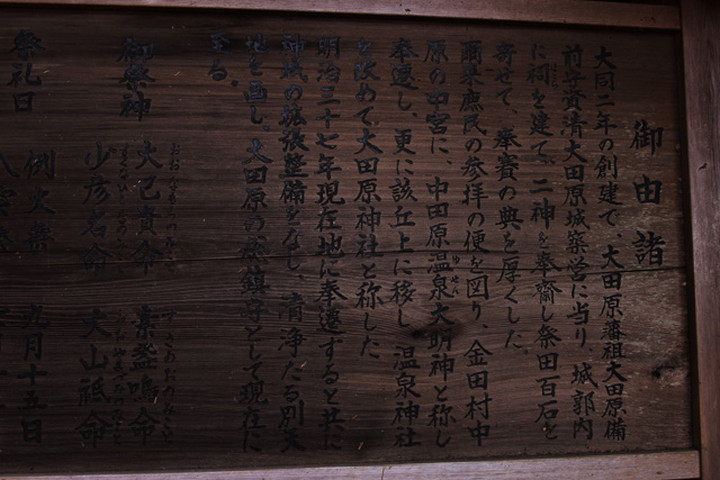 御由諸
大同二年の創建で、大田原藩祖大田原備
前守資清大田原城築営に当り、城郭内
に祠を建て、二神を奉齋し祭田百石を
寄せて、奉賽の典を厚くした。
爾来庶民の参拝の便を図り、金田村中
原の中宮に、中田原温泉大明神と称し
奉還し、更に該丘上に移し、温泉神社
を改めて大田原神社と称した
明治三十七年現在地に奉遷すると共に
神域の拡張整備をなし、清浄たる別天
地を画し、大田原の総鎮守として現在に
至る。
御祭神 大己貴命 素盞鳴命
少彦名命 大山祇命
祭礼日 例大祭 九月十五日